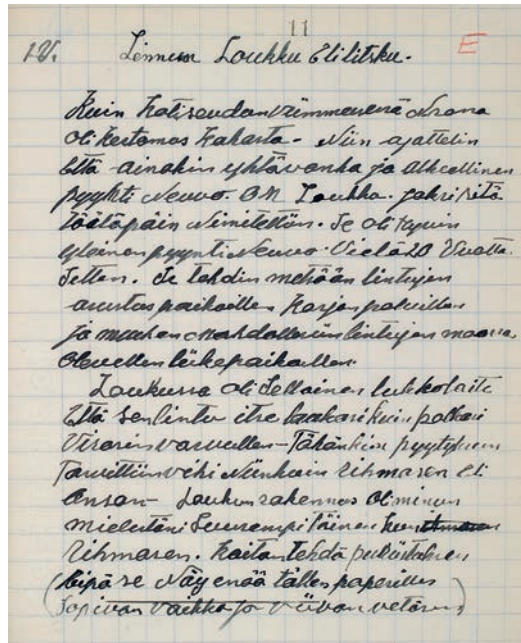 11
IV. Linnun Loukku Eli litsku.
E
Kuin Kotiseudan viimmesenä Nrona
Oli kertomos Kahasta - Niin ajattelin
Että ainakin yhtävanha ja Alkeellinen
pyykti Neuvo. ON Loukko.
täätäpäin Nimitettän. Se oli
yleinen pyynti Neuvo. Vielä 20 Vuotta.
Sitten. Se tehdin metsään lintujen
asustus paikoillen Karjan poluillen
ja muihen Mahdollisiin lintujen maassa
Olevillen liikepaikoillen.
Loukussa Oli Sellainen
Että Sen lintu itse laukasi kuin polkasi
Virarin varvullen - Tähänkin pyytykseen
Tarvittiin viki Niinkuin Rihmasen Eli
Ansan - Loukun rakennos Oli minun
mielestäni Suurempi Töinen kun
Rihmasen. Koitan tehdä
eipä se Näy enää tälles paperilles
(Sopivan Vaikka jo viivan vetäsin)